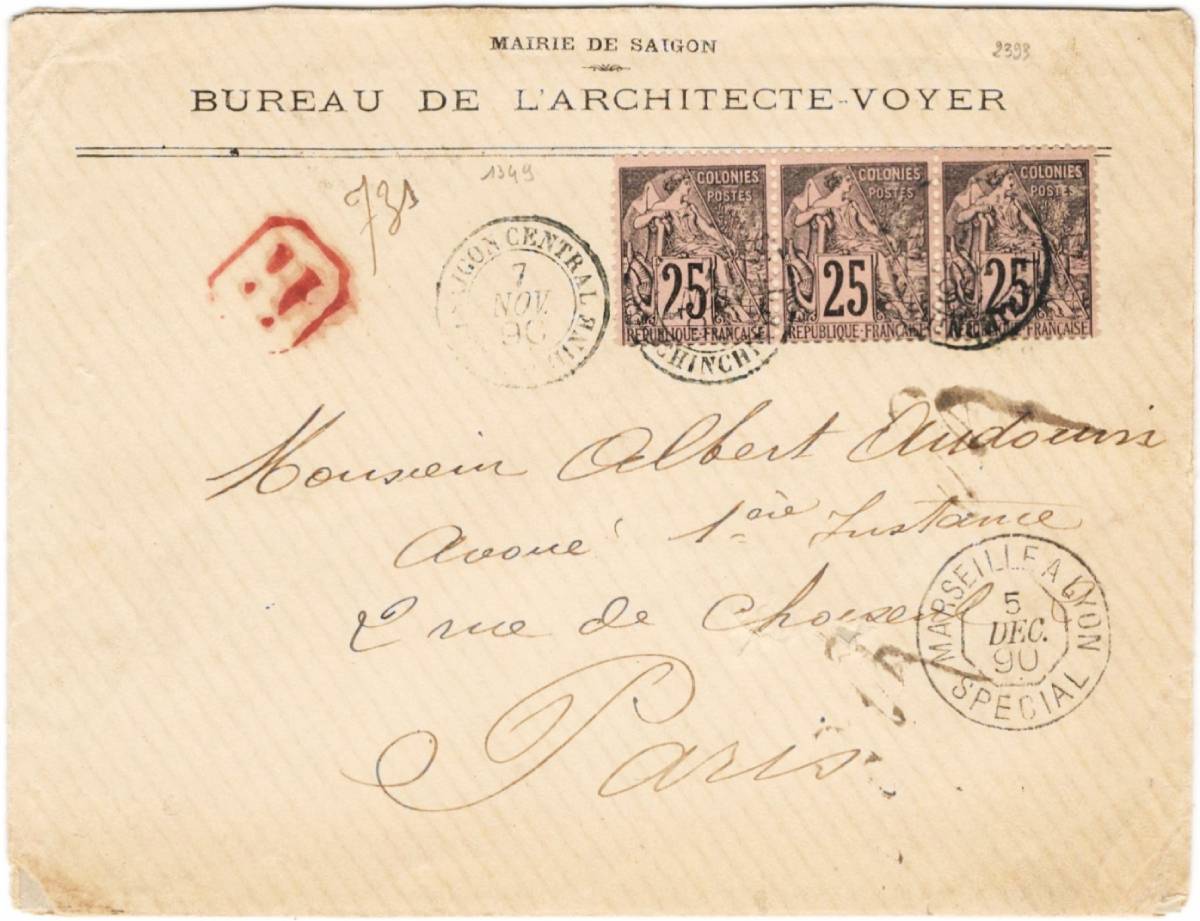 MAIRIE DE SAIGON
2393
BUREAU DE L'ARCHITECTE-VOYER
731
1349
R
SAIGON CENTRAL
7
NOV.
90
COLONIES
POSTES
25
RÉPUBLIQUE-FRANÇAISE
COLONIES
POSTES
25
RÉPUBLIQUE-FRANÇAISE
COLONIES
POSTES
25
Monsieur Albert Audouin
Avoué 1ère Instance
2 rue de Choiseul
Paris
MARSEILLE A LYON
5
DEC.
90
SPECIAL